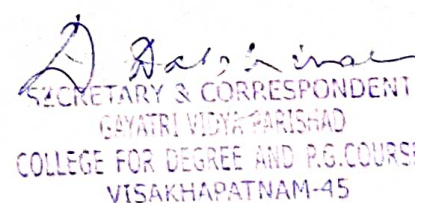 SECRETARY & CORRESPONDENT
GAYATRI VIDYA PARISHAD
COLLEGE FOR DEGREE AND P.G.COURS
VISAKHAPATNAM-45